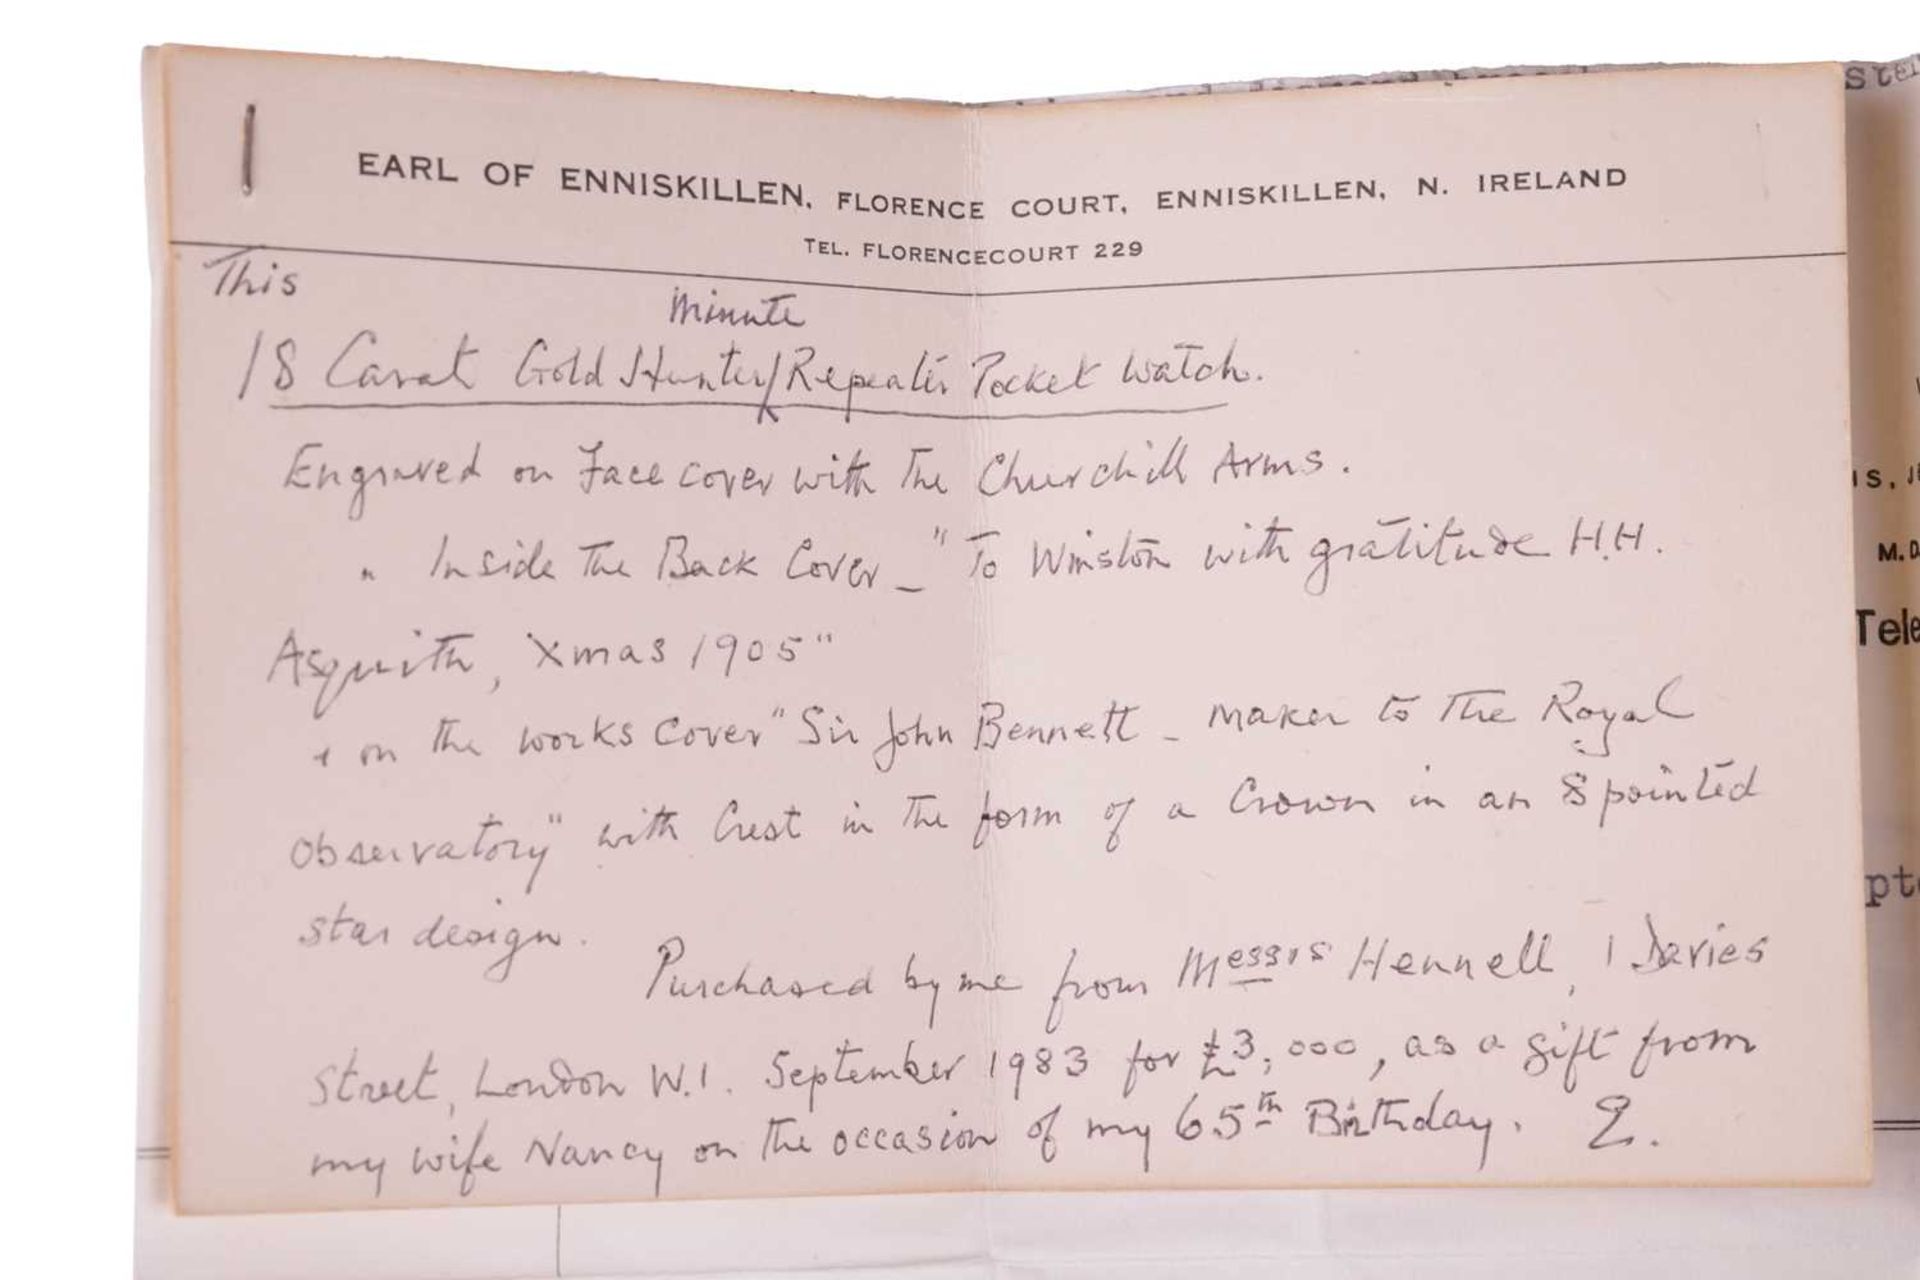 EARL OF ENNISKILLEN, FLORENCE COURT, ENNISKILLEN, N. IRELAND
TEL. FLORENCECOURT 229
This
Minute
18 Carat Gold Hunter/Repeater Pocket Watch.
Engraved on Face cover with The Churchill Arms.
" Inside The Back Cover – "To Winston with gratitude H.H.
Asquith, Xmas 1905"
+ on the works cover "Sir John Bennett – Maker to The Royal
Observatory" with Crest in The form of a Crown in an 8 pointed
star design.
Purchased by me from Messrs Hennell, 1 Davies
Street, London W.1. September 1983 for £3,000, as a gift from
my wife Nancy on the occasion of my 65th Birthday. E.
Tele